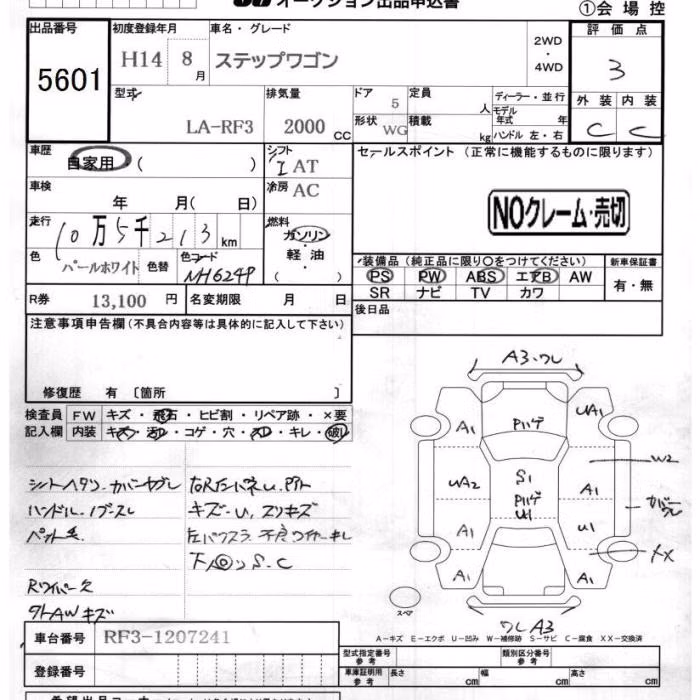 オークション出品申込書
①会場控
出品番号
5601
初度登録年月
H14 8月
車名・グレード
ステップワゴン
2WD
・
4WD
評価点
3
外装 内装
C C
型式
LA-RF3
排気量
2000 CC
ドア 5
形状 WG
定員 人
積載 kg
ディーラー・並行
モデル年式 年
ハンドル 左・右
車歴
自家用 ( )
シフト
I AT
セールスポイント (正常に機能するものに限ります)
NOクレーム・売切
車検
年 月( 日)
冷房 AC
走行
10万5千213 km
燃料
ガソリン
・
軽油
( )
色
パールホワイト
色替
色コード
NH624P
装備品 (純正品に限り○をつけてください)
PS PW ABS エアB AW
SR ナビ TV カワ
新車保証書
有・無
R券 13,100 円
名変期限 月 日
後日品
注意事項申告欄 (不具合内容等は具体的に記入して下さい)
修復歴 有 〔箇所 〕
検査員
記入欄
FW キズ・飛石・ヒビ割・リペア跡・×要
内装 キズ・汚れ・コゲ・穴・スレ・キレ・破レ
シートヘタリ・カバーヤブレ
ハンドル・ノブスレ
Rワイパー欠
外AWキズ
キズ・U、スリキズ
下廻S.C
A3・ワレ
A1
UA1
Pハゲ
W2
UA2
S1
Pハゲ
U1
A1
A1
U1
カバーワレ
XX
A1
A1
スペア
ワレA3
A-キズ E-エクボ U-凹み W-補修跡 S-サビ C-腐食 XX-交換済
車台番号 RF3-1207241
登録番号
型式指定番号
参考
類別区分番号
参考
車庫証明用
参考
長さ cm 幅 cm 高さ cm